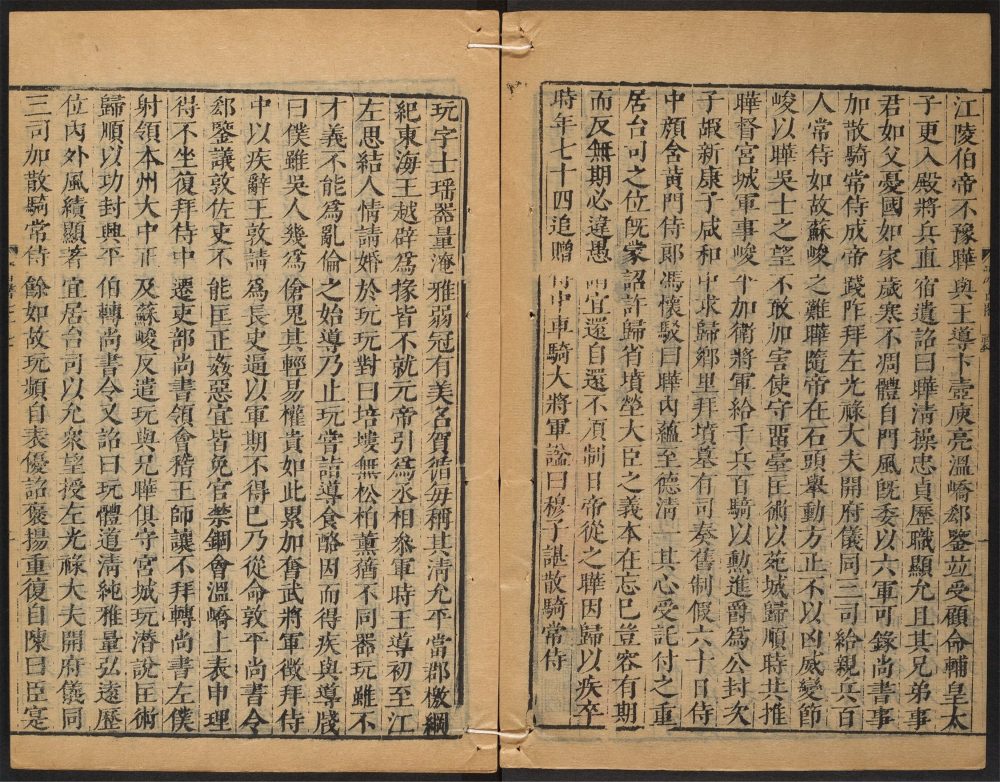 江陵伯帝不豫曄與王導卞壼庾亮溫嶠郗鑒並受顧命輔皇太
子更入殿將兵直宿遺詔曰曄清操忠貞歷職顯允且其兄弟事
君如父憂國如家歲寒不凋體自門風旣委以六軍可錄尚書事
加散騎常侍成帝踐阼拜左光祿大夫開府儀同三司給親兵百
人常侍如故蘇峻之難曄隨帝在石頭舉動方正不以凶威變節
峻以曄吳士之望不敢加害使守留臺匡術以苑城歸順時共推
曄督宮城軍事峻平加衛將軍給千兵百騎以勳進爵爲公封次
子嘏新康子咸和中求歸鄉里拜墳墓有司奏舊制假六十日侍
中顏含黃門侍郎馮懷駁曰曄內蘊至德清一其心受託付之重
居台司之位旣蒙詔許歸省墳塋大臣之義本在忘己豈容有期
而反無期必違愚謂宜還自還不須制日帝從之曄因歸以疾卒
時年七十四追贈侍中車騎大將軍諡曰穆子諶散騎常侍
玩字士瑤器量淹雅弱冠有美名賀循每稱其清允平當郡檄綱
紀東海王越辟爲掾皆不就元帝引爲丞相參軍時王導初至江
左思結人情請婚於玩玩對曰培塿無松柏薰蕕不同器玩雖不
才義不能爲亂倫之始導乃止玩嘗詣導食酪因而得疾與導牋
曰僕雖吳人幾爲傖鬼其輕易權貴如此累加奮武將軍徵拜侍
中以疾辭王敦請爲長史逼以軍期不得已乃從命敦平尚書令
郗鑒議敦佐吏不能匡正姦惡宜皆免官禁錮會溫嶠上表申理
得不坐復拜侍中遷吏部尚書領會稽王師讓不拜轉尚書左僕
射領本州大中正及蘇峻反遣玩與兄曄俱守宮城玩潛說匡術
歸順以功封興平伯轉尚書令又詔曰玩體道清純雅量弘遠歷
位內外風績顯著宜居台司以允衆望授左光祿大夫開府儀同
三司加散騎常侍餘如故玩頻自表優詔褒揚重復自陳曰臣寔